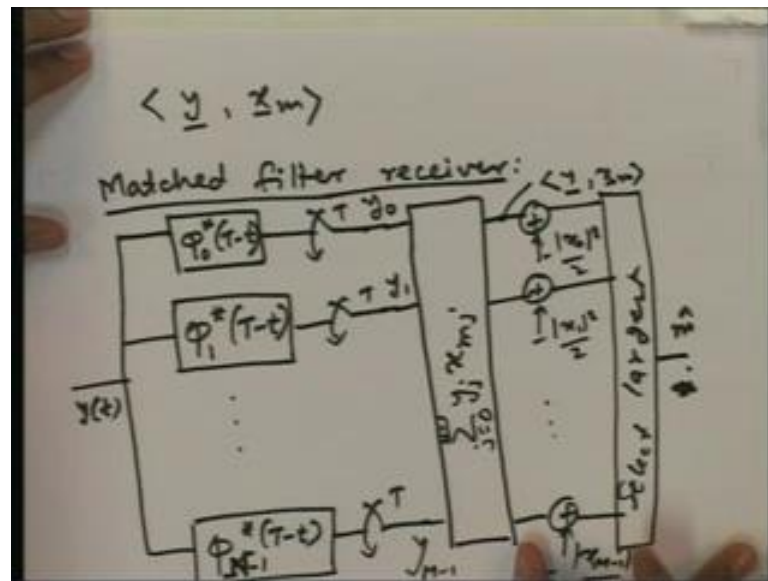 < y , x m >
Matched filter receiver:
φ₀*(T-t) T y₀ <y, x m>
+
-|x₀|²/2
φ₁*(T-t) T y₁
+
-|x₁|²/2
y(t)
∑ j=0 yⱼ x mj
Select largest
m̂
φ*(T-t) T
+
y M-1
|x M-1|